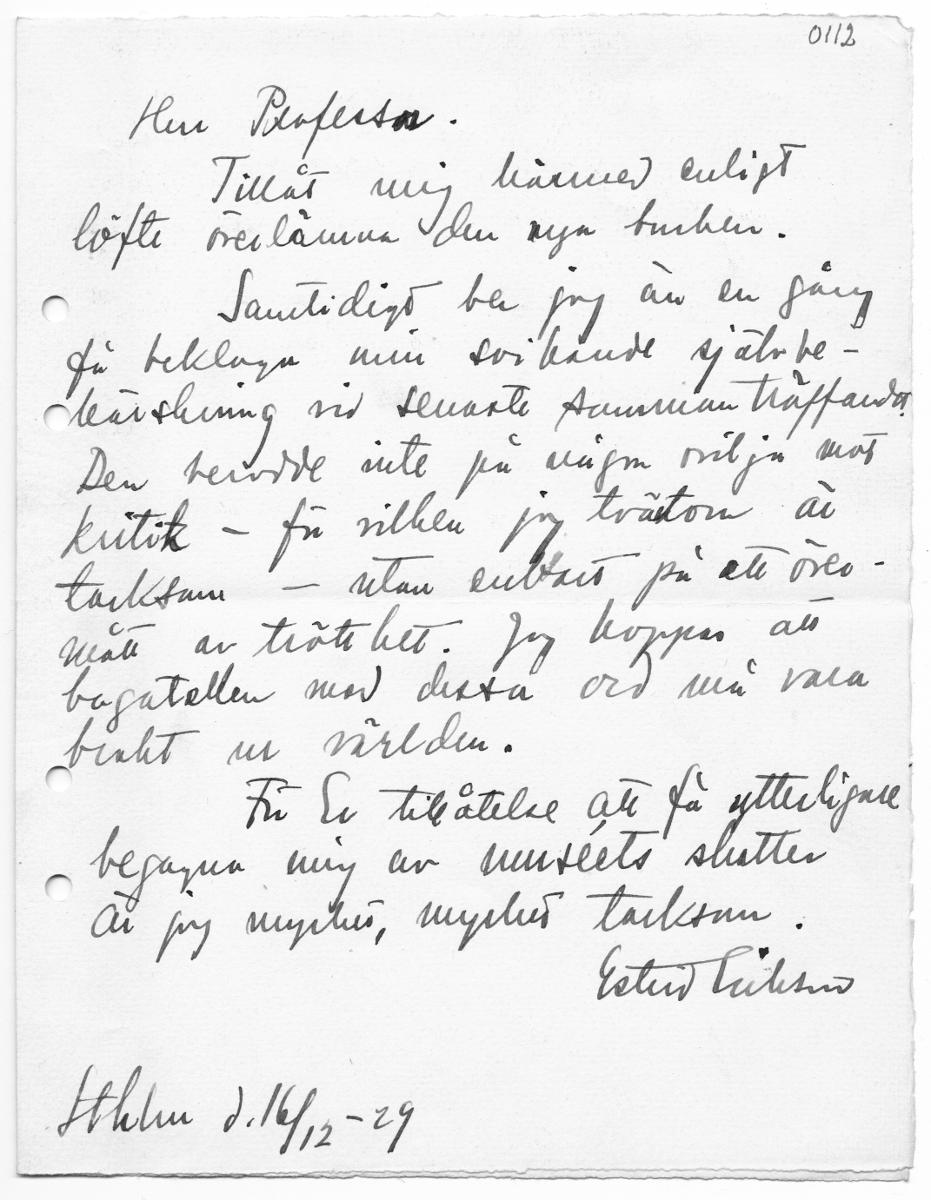 0112
Herr Professor.
Tillåt mig härmed enligt
löfte överlämna den nya burken.
Samtidigt ber jag än en gång
få beklaga min svikande självbe-
härskning vid senaste sammanträffandet.
Den berodde inte på någon ovilja mot
kritik – för vilken jag tvärtom är
tacksam – utan endast på ett över-
mått av trötthet. Jag hoppas att
bagatellen med dessa ord må vara
bragt ur världen.
För Er tillåtelse att få ytterligare
begagna mig av muséets skatter
är jag mycket, mycket tacksam.
Estrid Ericson
Sthlm d. 16/12 – 29